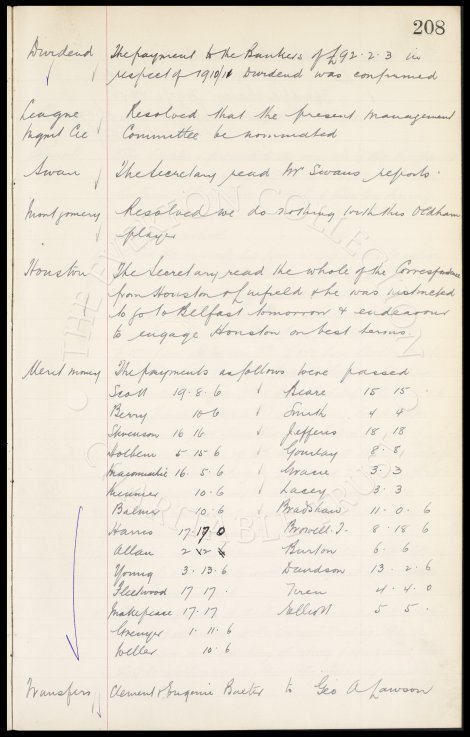 208
Dividend The payment to the Bankers of £92. 2. 3 in
respect of 1910/11 Dividend was confirmed
League Resolved that the present Management
Mgmt Cee Committee be nominated
Swan The Secretary read Mr Swans reports.
Montgomery Resolved we do nothing with this Oldham
player
Houston The Secretary read the whole of the Correspondence
from Houston & Linfield & he was instructed
to go to Belfast tomorrow & endeavour
to engage Houston on best terms.
Merit money The payments as follows were passed
Scott 19. 8. 6 Beare 15 15.
Berry 10. 6 Smith 4 4
Stevenson 16 16 Jefferis 18 18
Holbem 5 15 6 Gourlay 8. 8
Maconnachie 16. 5. 6 Gracie 3. 3
Meunier 10. 6 Lacey 3. 3
Balmer 10. 6 Bradshaw 11. 0. 6
Harris 17 17 0 Browell. T. 8. 18 6
Allan 2 12 6 Burton 6. 6
Young 3. 13. 6 Davidson 13. 2. 6
Fleetwood 17 17. Turen 4. 4. 0
Makepeace 17. 17 Elliott 5 5.
Grenyer 1. 11. 6
Weller 10. 6
Transfers Clement & Eugenie Baxter to Geo A Lawson
THE EVERTON COLLECTION
CHARITABLE TRUST